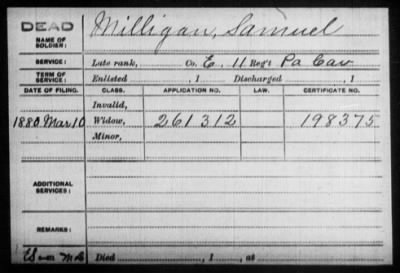 DEAD
NAME OF SOLDIER: Milligan, Samuel
SERVICE: Late rank, Co. E, 11 Reg't Pa Cav
TERM OF SERVICE: Enlisted , 1 Discharged , 1
DATE OF FILING. CLASS. APPLICATION NO. LAW. CERTIFICATE NO.
Invalid,
1880 Mar 10 Widow, 261312 198375
Minor,
ADDITIONAL SERVICES:
REMARKS:
Died , 1 , at